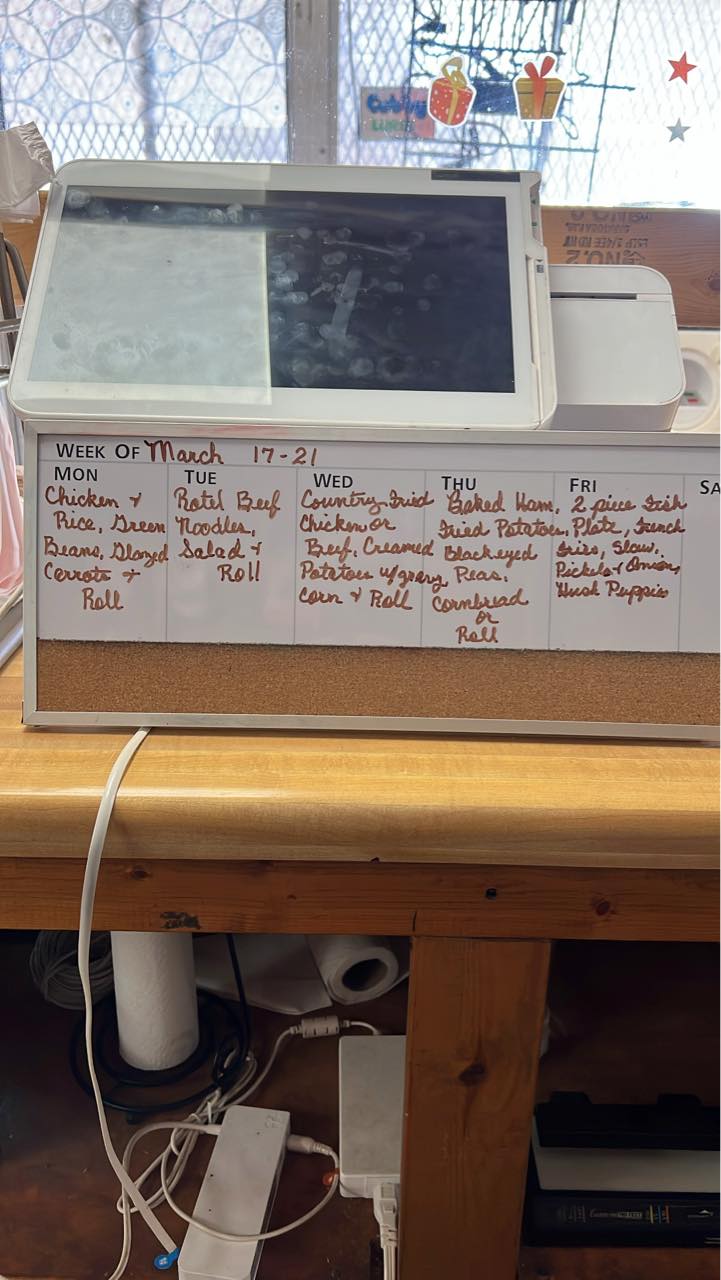 WEEK OF March 17-21
MON
Chicken +
Rice, Green
Beans, Glazed
Carrots +
Roll
TUE
Rotel Beef
Noodles,
Salad +
Roll
WED
Country Fried
Chicken or
Beef, Creamed
Potatoes w/gravy
Corn + Roll
THU
Baked Ham,
Fried Potatoes,
Blackeyed
Peas,
Cornbread
or
Roll
FRI
2 piece Fish
Plate, French
fries, Slaw,
Pickels + Onion,
Hush Puppies
SA
NO.2